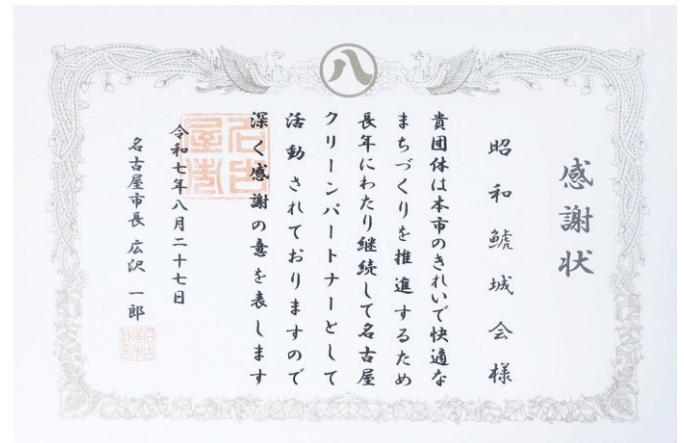 八
感謝状
昭和鯱城会様
貴団体は本市のきれいで快適な
まちづくりを推進するため
長年にわたり継続して名古屋
クリーンパートナーとして
活動されておりますので
深く感謝の意を表します
令和七年八月二十七日
名古屋市長 広沢 一郎